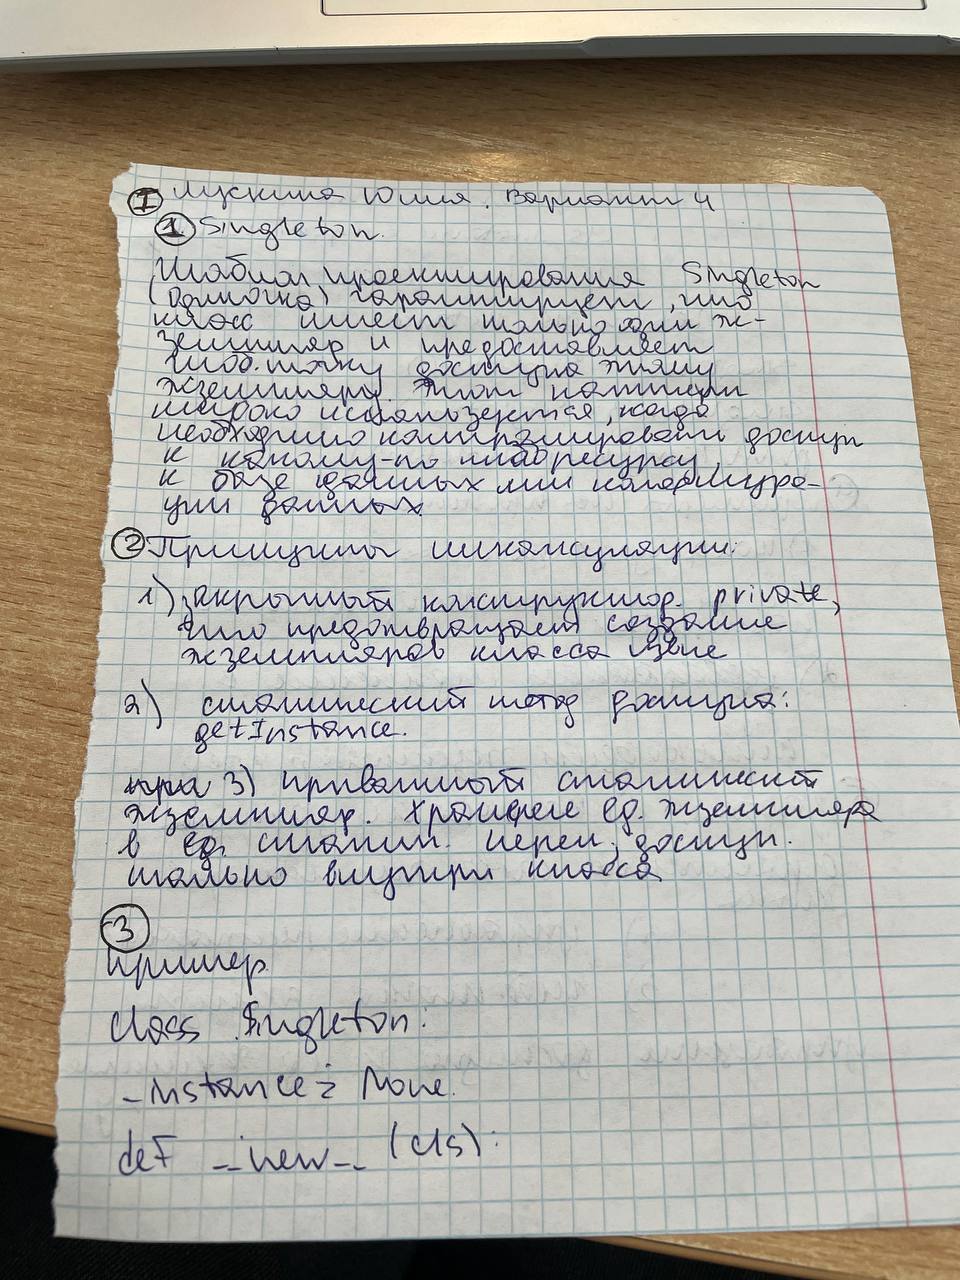 I Лускина Юлия. Вариант 4
1 Singleton.
Шаблон проектирования Singleton
(одиночка) гарантирует, что
класс имеет только один эк-
земпляр и предоставляет
глоб. точку доступа к этому
экземпляру. Этот паттерн
широко используется, когда
необходимо контролировать доступ
к какому-то глоб ресурсу,
к базе данных или конфигура-
ции данных.
2 Принципы инкапсуляции:
1) закрытый конструктор. private,
что предотвращает создание
экземпляров класса извне
2) статический метод доступа:
getInstance.
3) приватный статический
экземпляр. Хранение ед. экземпляра
в ед. статич. перем, доступ.
только внутри класса
3
Пример
class Singleton:
_instance = None.
def __new__ (cls):